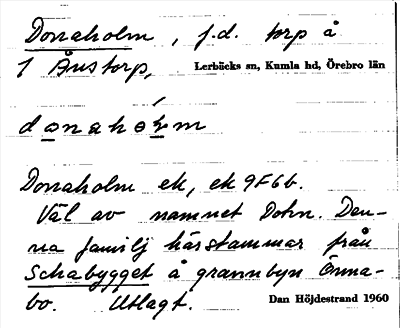 Donaholm, f.d. torp å
1 Åustorp, Lerbäcks sn, Kumla hd, Örebro län
donahom
Donaholm ek, ek 9F6b.
Väl av namnet Dohn. Den-
na familj härstammar från
Schabygget å grannbyn Önna-
bo. Utlagt. Dan Höjdestrand 1960